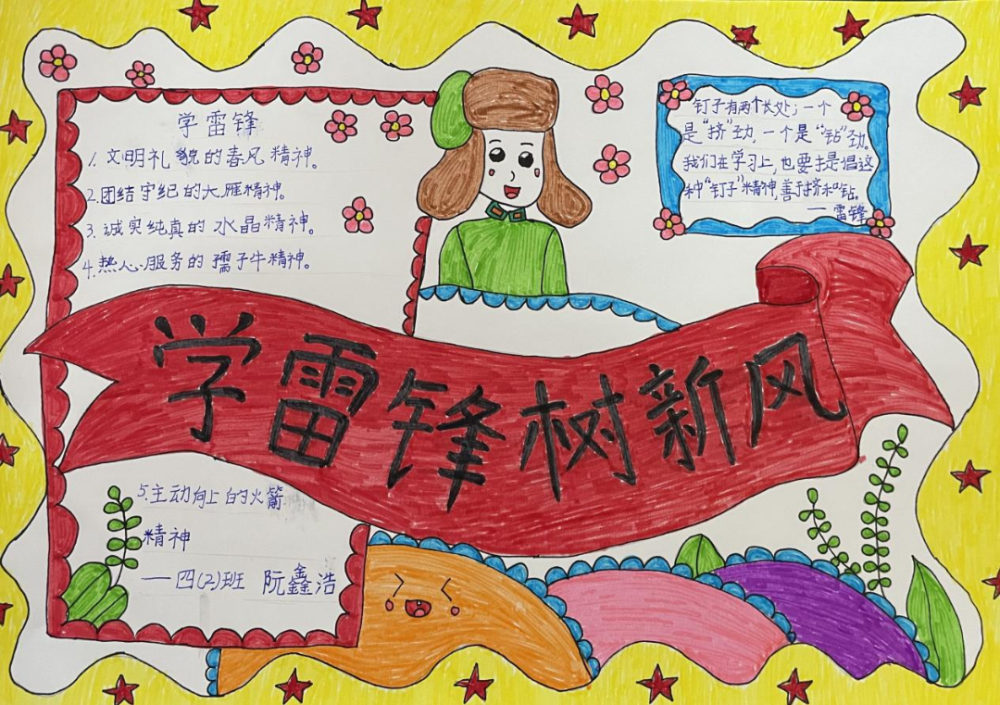 学雷锋
1.文明礼貌的春风精神。
2.团结守纪的大雁精神。
3.诚实纯真的水晶精神。
4.热心服务的孺子牛精神。
钉子有两个长处；一个
是“挤”劲，一个是“钻”劲。
我们在学习上，也要提倡这
种“钉子”精神，善于挤和钻。
——雷锋
学雷锋树新风
5.主动向上的火箭
精神
——四(2)班 阮鑫浩